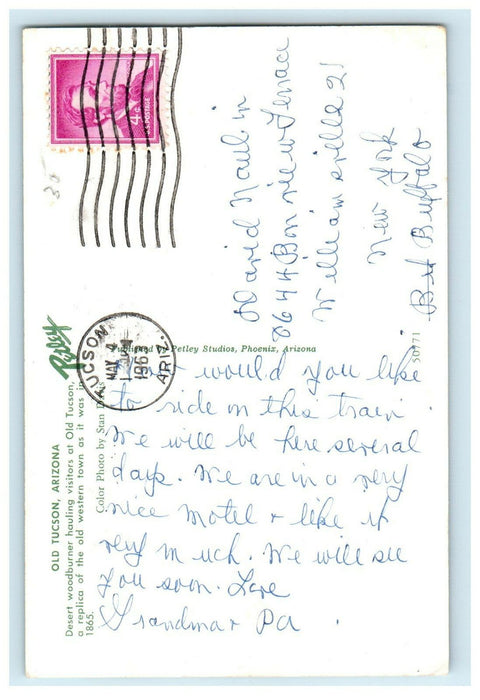 4¢
U.S. POSTAGE
TUCSON
MAY 4
ARIZ.
David Naubin
8644 Bon view Terrace
Williamsville 21
New York
Bet Buffalo
Petley
Published by Petley Studios, Phoenix, Arizona
50771
OLD TUCSON, ARIZONA
Desert woodburner hauling visitors at Old Tucson,
a replica of the old western town as it was in
1865.
Color Photo by Stan Davis
would you like
to ride on this train
We will be here several
days. We are in a very
nice Motel & like it
very much. We will see
you soon. Love
Grandma & Pa